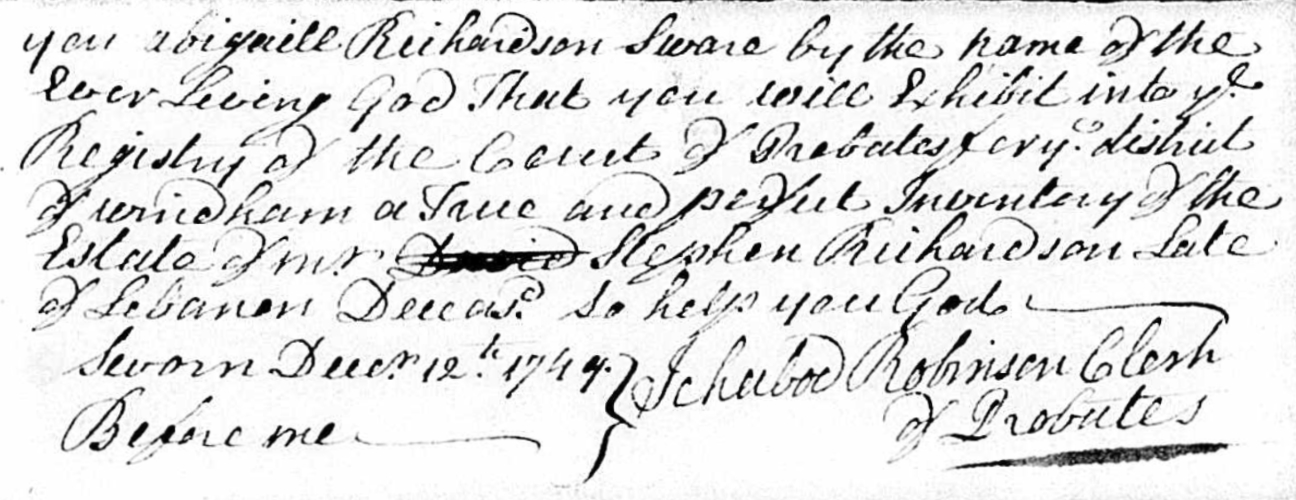 you abigaill Richardson Sware by the name of the
Ever Living God That you will Exhibit into ye
Registry of the Court of Probates for ye district
of windham a True and perfect Inventory of the
Estate of mr David Stephen Richardson Late
of Lebanon Deceasd. So help you God
Sworn Decr. 12th. 1749. } Ichabod Robinson Clerk
Before me of Probates